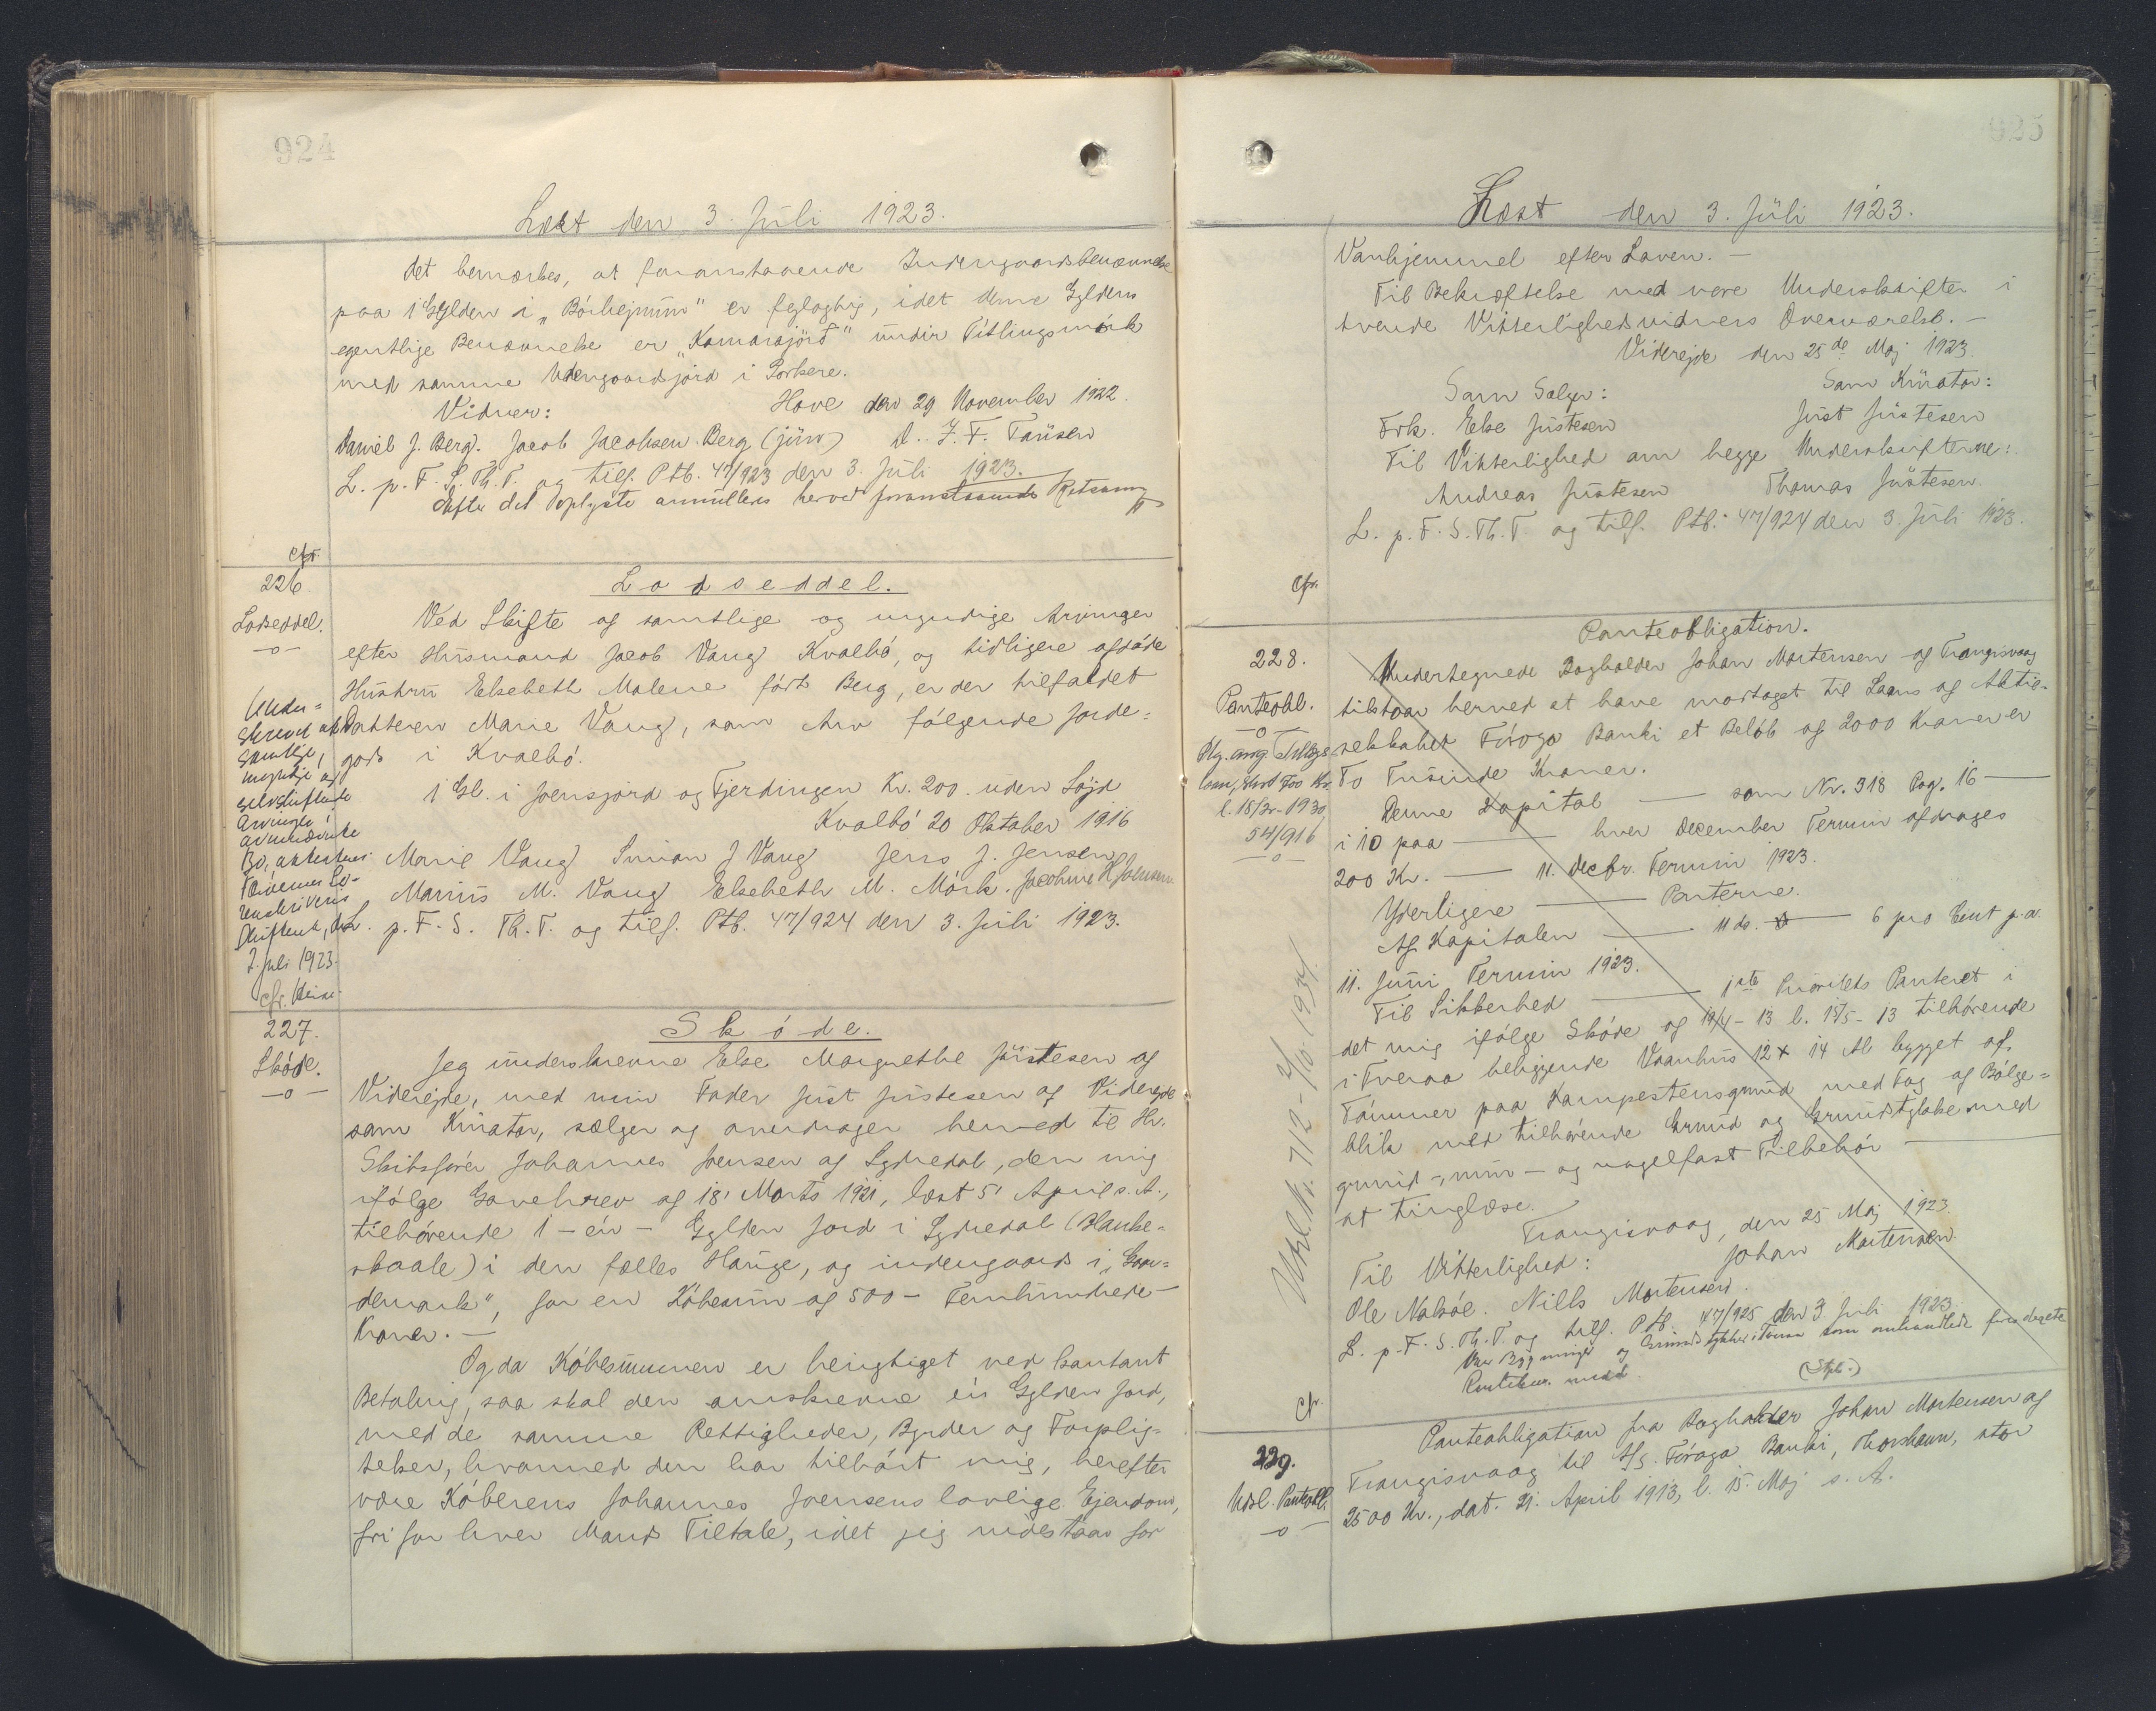 924
Læst den 3. Juli 1923.
Det bemærkes, at foranstaaende Indengaardsbenævnelse
paa 1 Gylden i "Bórhejnum" er fejlagtig, idet denne Gyldens
egentlige Benævnelse er "Kamarajörd" undir Titlingsmórk
med samme Udengaardsjórd i Porkere.
Vidner: Hove den 29 November 1922.
Daniel J. Berg. Jacob Jacobsen Berg (junr) D. J. F. Tausen
L. p. F. S. Th. T. og tilf. Ptb. 47/923 den 3. Juli 1923.
Efter det oplyste annulleres herved foranstaaende
cfr.
226.
Lodseddel.
-o-
Lodseddel.
Ved Skifte af samtlige og myndige Arvinger
efter Husmand Jacob Vang Kvalbó, og tidligere afdóde
Hustru Elsebeth Malene fódt Berg, er der tilfaldet
Datteren Marie Vang, som Arv fólgende Jorde=
gods i Kvalbó.
1 Gl. i Joensjord og Fjerdingen Kr. 200. uden Lójd
Kvalbó 20 Oktober 1916
Marie Vang Simon J Vang Jens J. Jensen
Marius M. Vang Elsebeth M. Mórk. Jacobine H Johansen
L. p. F. S. Th. T. og tilf. Ptb. 47/924 den 3. Juli 1923.
Under=
skrevet af
samtlige,
myndige og
selvskiftende
Arvinge i
Bo, attesteres
Skiftent, d.
2. Juli 1923.
cfr.
227.
Skóde.
-o-
Skóde.
Jeg underskrevne Else Margrethe Justesen af
Viderejde, med min Fader Just Justesen af Viderejde
som Kurator, sælger og overdrager herved til Hr.
Skibsfórer Johannes Joensen af Sydredal, den mig
ifólge Gavebrev af 18' Marts 1921, læst 5' April s. A.,
tilhórende 1 - én - Gylden Jord i Sydredal (Blanke=
skaale) i den fælles Hauge, og indengaards i "Gaar=
demark", for en Kóbesum af 500 - Femhundrede -
Kroner. -
Og da Kóbesummen er berigtiget ved kontant
Betaling, saa skal den omskrevne én Gylden Jord,
med de samme Rettigheder, Byrder og Forplig-
telser, hvormed den har tilhórt mig, herefter
være Kóberens Johannes Joensens lovlige Ejendom,
fri for hver Mands Tiltale, idet jeg indestaar for
925
Læst den 3. Juli 1923.
Vanhjemmel efter Loven. -
Til Bekræftelse med vore Underskrifter i
tvende Vitterlighedsvidners Overværelse. -
Viderejde den 25de Maj 1923.
Som Sælger: Som Kurator:
Frk. Else Justesen Just Justesen
Til Vitterlighed om begge Underskrifterne:
Andreas Justesen Thomas Justesen.
L. p. F. S. Th. T. og tilf. Ptb. 47/924 den 3. Juli 1923.
Cfr.
228.
Panteobl.
-o-
l. 18/3-1930,
54/916
-o-
Udsl. Nr. 712 - 2/10-1934.
Panteobligation.
Undertegnede Bogholder Johan Mortensen af Trangisvaag
tilstaar herved at have modtaget til Laans af Aktie-
selskabet Fóroya Banki et Belób af 2000 Kroner er
To Tusinde Kroner.
Denne Kapital - som Nr. 318 Pag. 16 -
i 10 paa - hver December Termin afdrages
200 Kr. - 11. Decbr. Termin 1923.
Yderligere - Panterne.
Af Kapitalen - 11 ds. - 6 pro Cent p. a.
11. Juni Termin 1923.
Til Sikkerhed - 1ste Prioritets Panteret i
det mig ifólge Skóde af 19/4 - 13 l. 15/5 - 13 tilhórende
i Tveraa beliggende Vaanhus 12 x 14 Al bygget af
Tómmer paa Kampestensgrund med Tag af Bólge=
blik med tilhórende Grund og Grundstykke med
grund-, mur- og nagelfast Tilbehór -
at tinglæse.
Trangisvaag, den 25 Maj 1923.
Til Vitterlighed: Johan Mortensen.
Ole Nolsóe. Niels Mortensen.
L. p. F. S. Th. T. og tilf. Ptb. 47/925 den 3 Juli 1923.
Cfr.
229.
Udsl. Panteobl.
-o-
Panteobligation fra Bogholder Johan Mortensen af
Trangisvaag til A/S. Fóroya Banki, Thorshavn, stor
2500 Kr., dat. 21. April 1913, l. 15. Maj s. A.